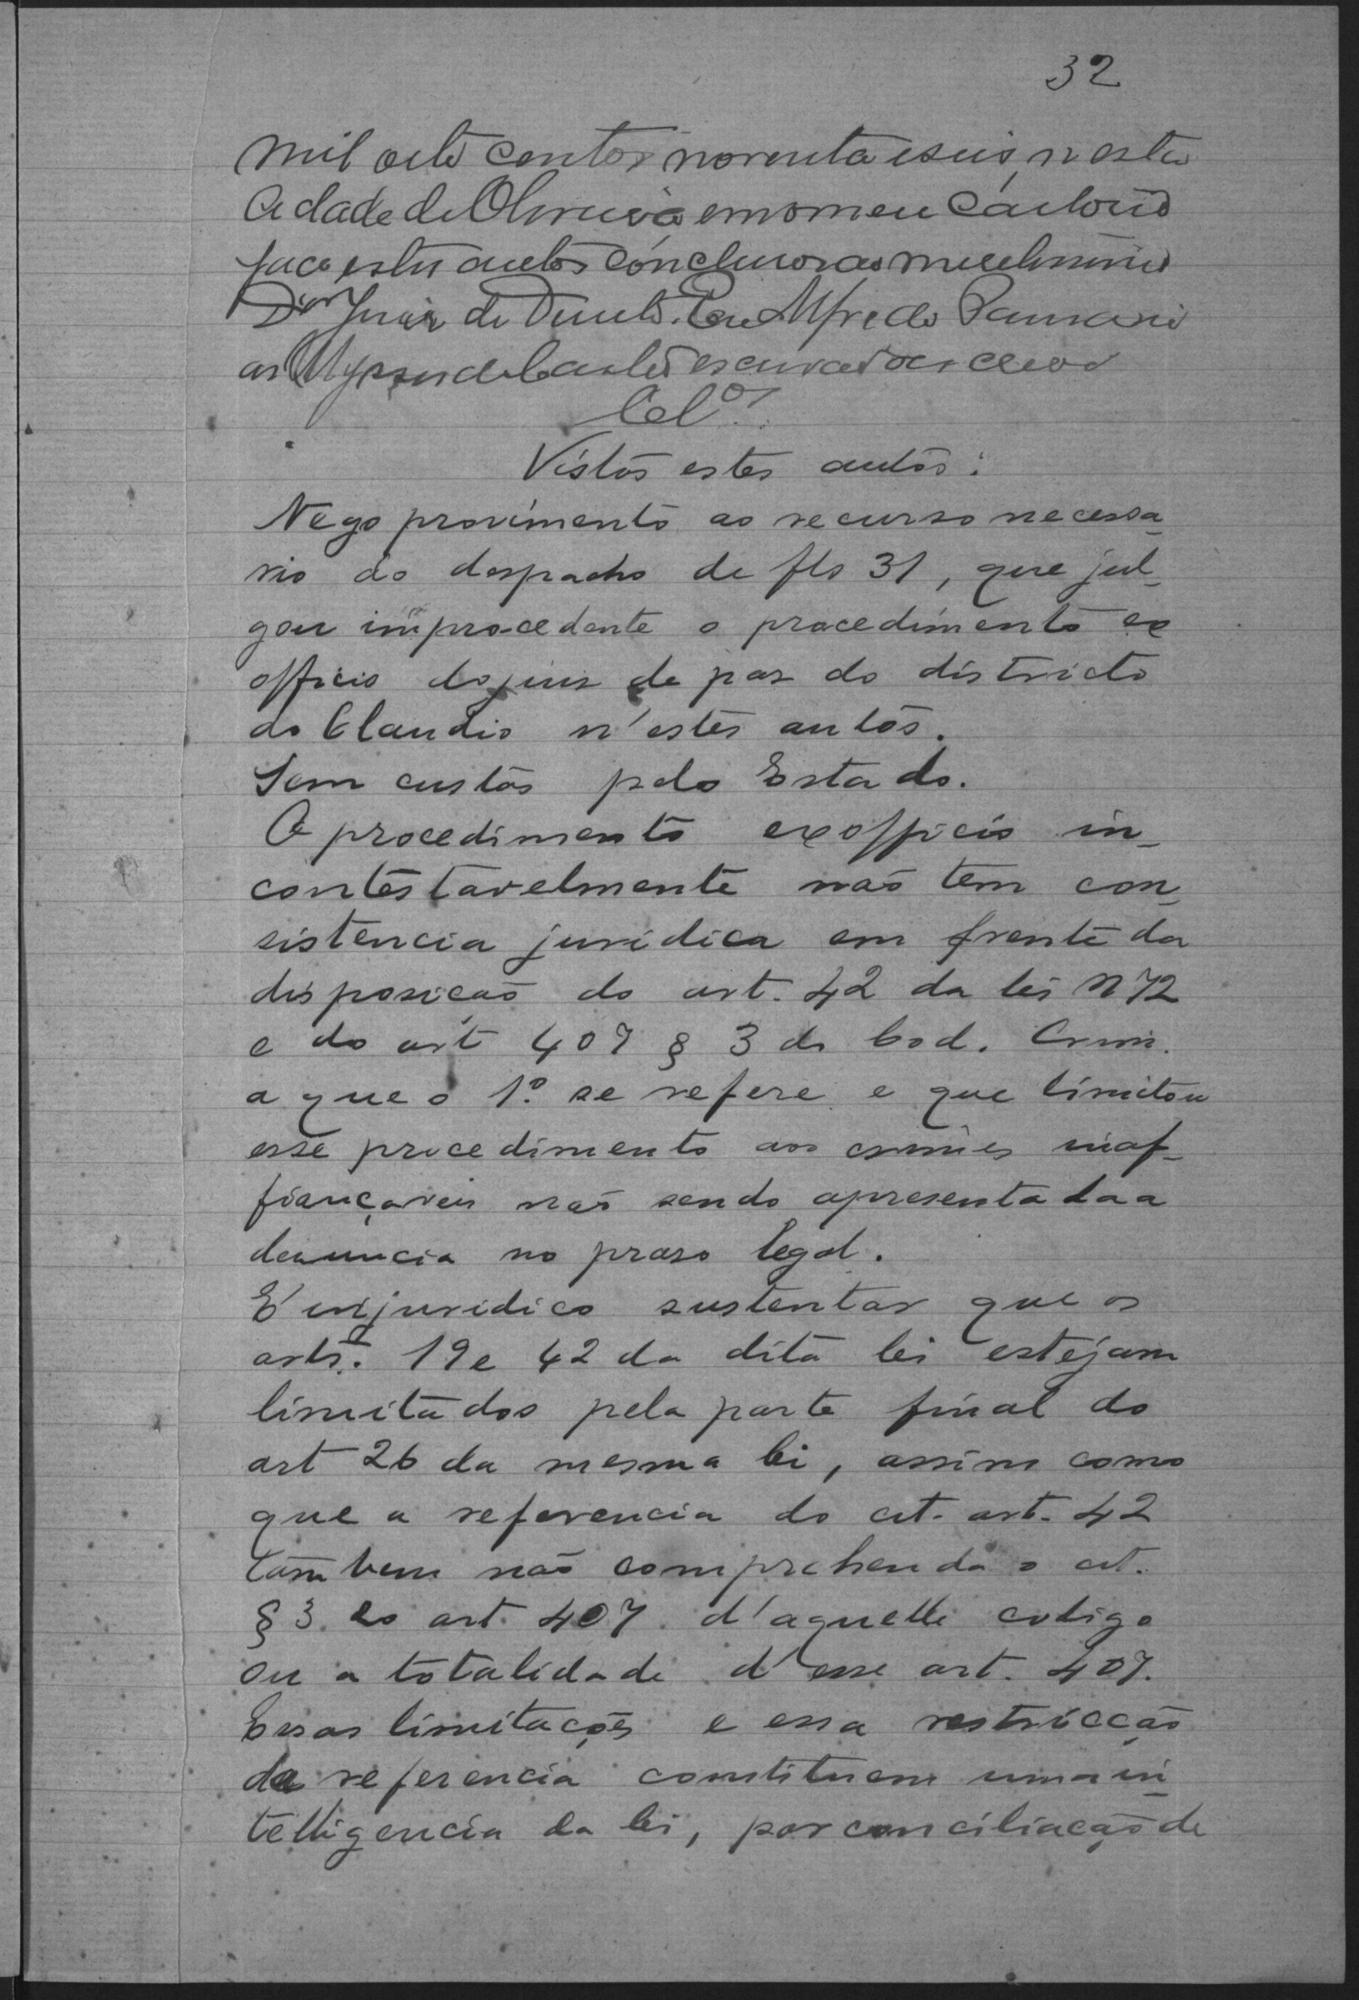 32
mil oito centos noventa e seis, n'esta
Cidade de Oliveira em o meu Cartorio
faço estes autos conclusos ao meretissimo
Dor Juiz de Direito. Eu Alfredo
de Castro escrivão escrevo
Clos
Vistos estes autos:
Nego provimento ao recurso necessa-
rio do despacho de fls 31, que jul-
gou improcedente o procedimento ex
officio do juiz de paz do districto
do Claudio n'estes autos.
Sem custas pelo Estado.
O procedimento ex officio in-
contestavelmente não tem con-
sistencia juridica em frente da
disposição do art. 42 da lei n 72
e do art 407 § 3 do Cod. Crim.
a que o 1º se refere e que limitou
esse procedimento aos crimes inaf-
fiançaveis não sendo apresentada a
denuncia no praso legal.
E' injuridico sustentar que os
arts. 19 e 42 da dita lei estejam
limitados pela parte final do
art 26 da mesma lei, assim como
que a referencia do cit. art. 42
tambem não comprehenda o cit.
§ 3 do art. 407 d'aquelle codigo
ou a totalidade d'esse art. 407.
Essas limitações e essa restricção
de referencia constituem uma in-
telligencia da lei, por conciliação de